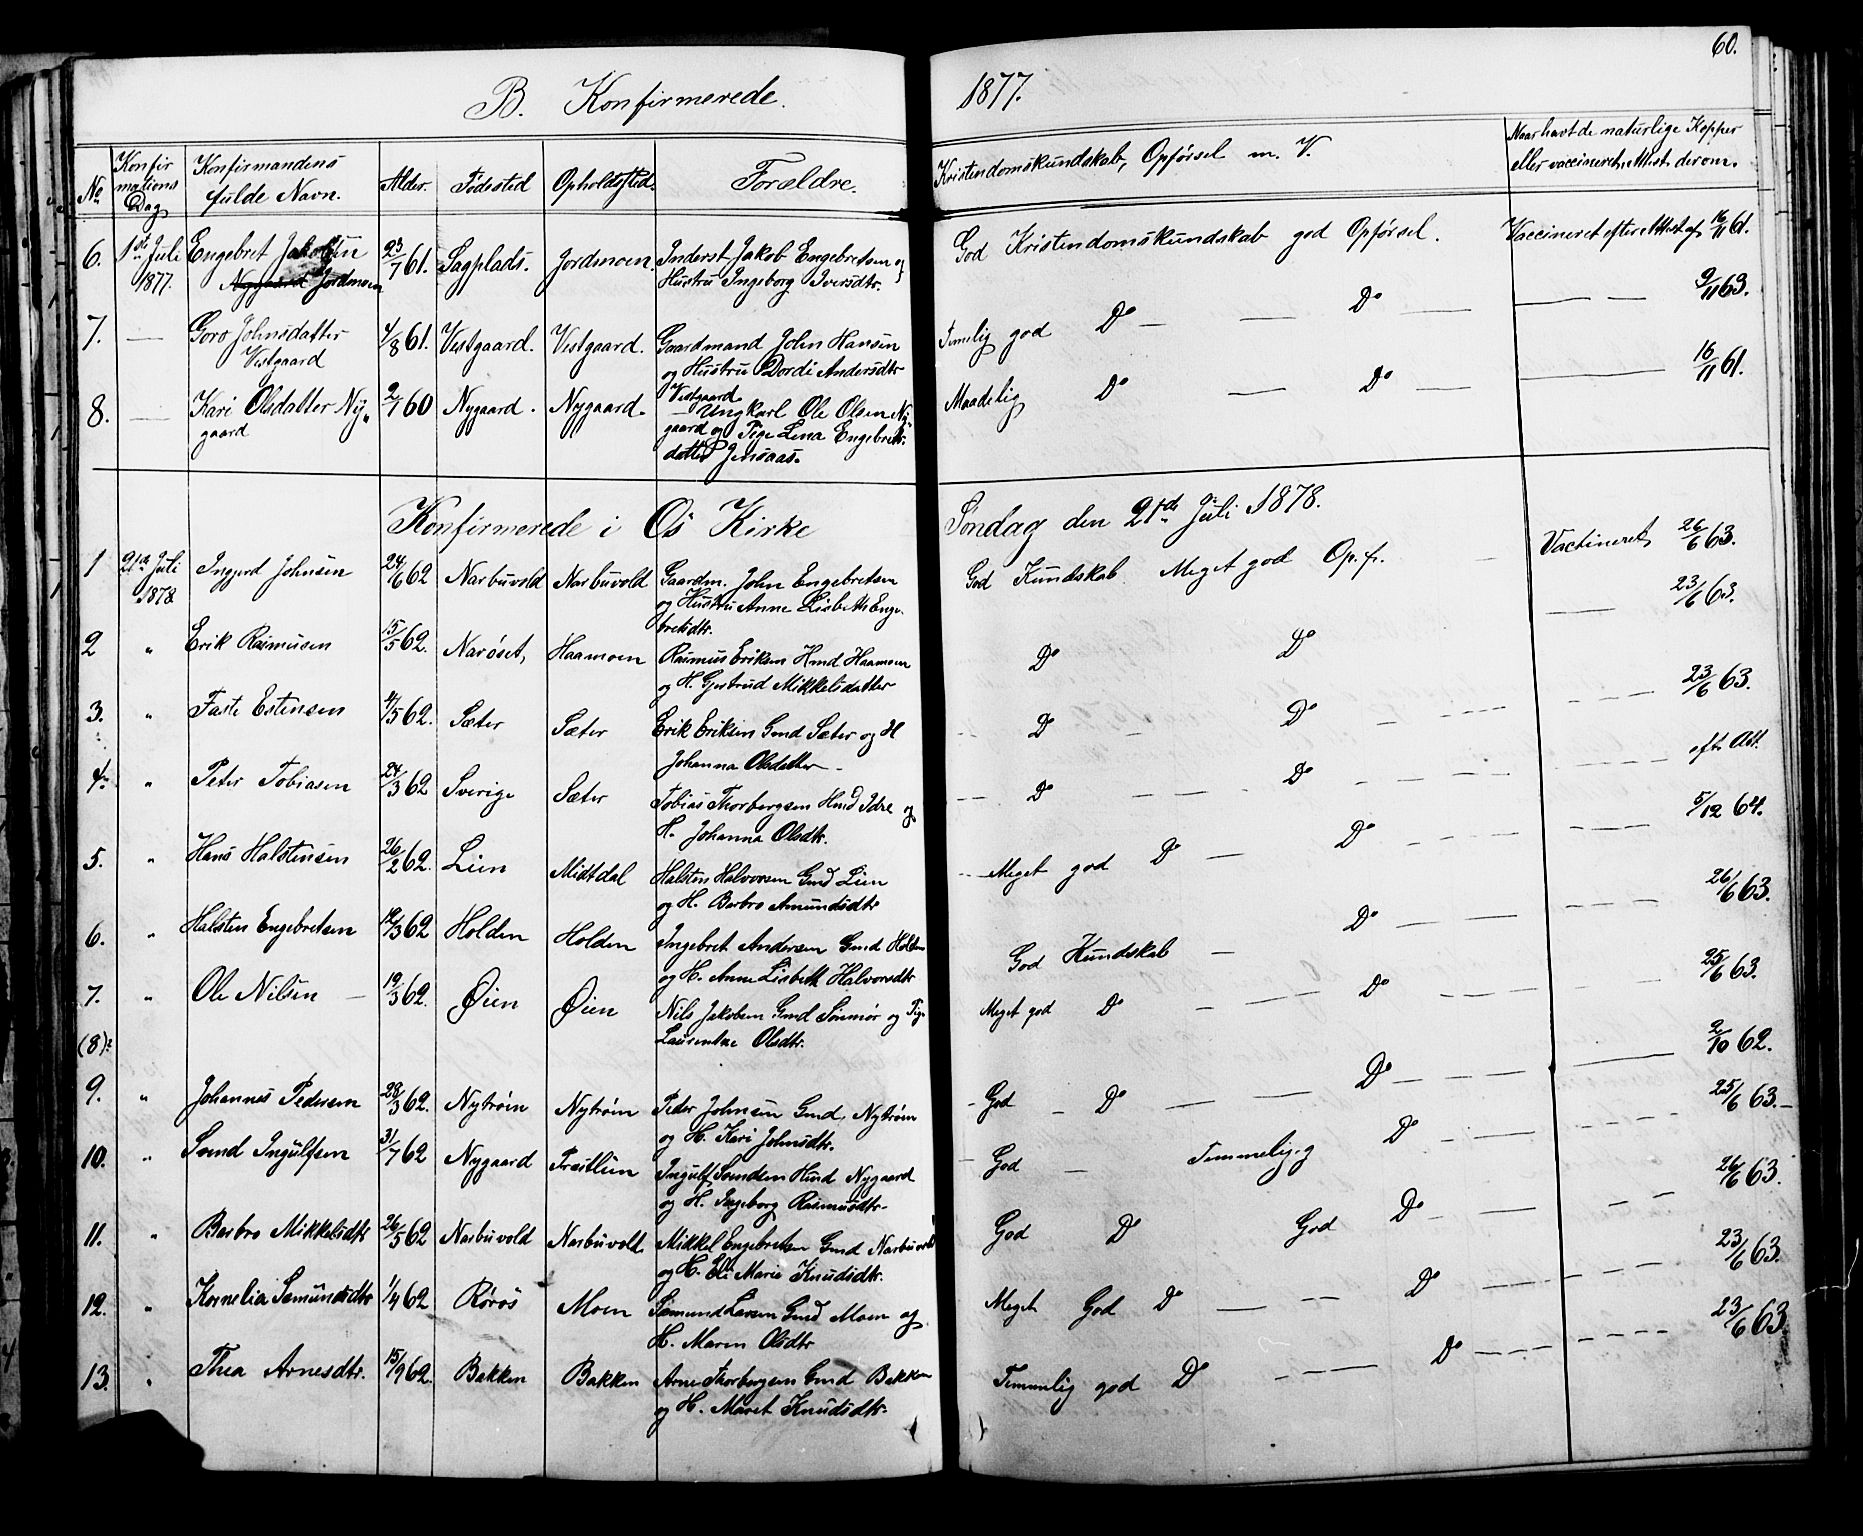 60.
B. Konfirmerede. 1877.
No Konfirmations Dag Konfirmandens fulde Navn. Alder. Fødested Opholdssted. Forældre. Kristendomskundskab, Opførsel m. V. Naar havt de naturlige Kopper eller vaccineret, Attest derom.
6. 1ste Juli 1877. Engebret Jakobsen Nygaard Jordmoen 23/7 61. Sagplads. Jordmoen. Inderst Jakob Engebretsen og Hustru Ingeborg Iversdtr. God Kristendomskundskab god Opførsel. Vaccineret efter Attest af 16/11 61.
7. — Goro Johnsdatter Vestgaard 4/8 61. Vestgaard. Vestgaard. Gaardmand John Hansen og Hustru Dordi Andersdtr Vestgaard Temelig god Do — — Do — — — 9/11 63.
8. — Kari Olsdatter Nygaard 2/7 60 Nygaard. Nygaard. — Ungkarl Ole Olsen Nygaard og Pige Lena Engebretsdatter Jensaas. Maadelig Do — Do — — 16/11 61.
Konfirmerede i Os Kirke Søndag den 21de Juli 1878.
1 21de Juli 1878 Ingjerd Johnsen 24/6 62 Narbuvold Narbuvold Gaardm. John Engebretsen og Hustru Anne Lisbeth Engebretsdtr. God Kundskab. Meget god Op.f. — Vaccineret 26/6 63.
2 " Erik Rasmusen 15/5 62. Narøset, Haamoen Rasmus Eriksen Hmd Haamoen og H. Gjertrud Mikkelsdatter Do Do — 23/6 63.
3. " Faste Estensen 11/5 62. Sæter Sæter Erik Eriksen Gmd Sæter og H Johanna Olsdatter — Do — Do — 23/6 63.
4. " Peter Tobiasen 24/3 62 Sverige Sæter Tobias Thorbergsen Hmd Idre og H. Johanna Olsdtr. Do — Do — eft. Att. 5/12 64.
5. " Hans Halstensen 26/2 62. Lien Midtdal Halsten Halvorsen Gmd Lien og H. Berbro Amundsdtr Meget god Do — Do —
6. " Halsten Engebretsen 12/3 62 Holden Holden Ingebret Andersen Gmd Holden og H. Anne Lisbeth Halvorsdtr God Kundskab — Do — 26/6 63.
7. " Ole Nilsen — 19/3 62. Øien Øien Nils Jakobsen Gmd og Pige Olsdtr. Meget god Do — Do — 25/6 63.
(8)
9. " Johannes Pedersen 28/3 62. Nytrøen Nytrøen Peder Johnsen Gmd. Nytrøen og H. Kari Johnsdtr. God — Do — Do — 2/10 62.
10. " Svend Ingulfsen 31/7 62 Nygaard Præstlien Ingulf Svendsen Hmd Nygaard og H. Ingeborg Rasmusdtr. God — Temmelig g Do — 25/6 63.
11. " Berbro Mikkelsdtr 26/5 62 Narbuvold Narbuvold Mikkel Engebretsen Gmd Narbuvold og H. Eli Marie Knudsdtr. God Do God Do — 26/6 63.
12. " Kornelia Sæmundsdtr 1/4 62 Røros Moen Sæmund Larsen Gmd Moen og H. Maren Olsdtr Meget God Do — Do — 23/6 63.
13. " Thea Arnesdtr. 15/9 62. Bakken Bakken Arne Thorbergsen Gmd Bakken og H. Maret Knudsdtr. Temmelig god Do — Do — 23/6 63